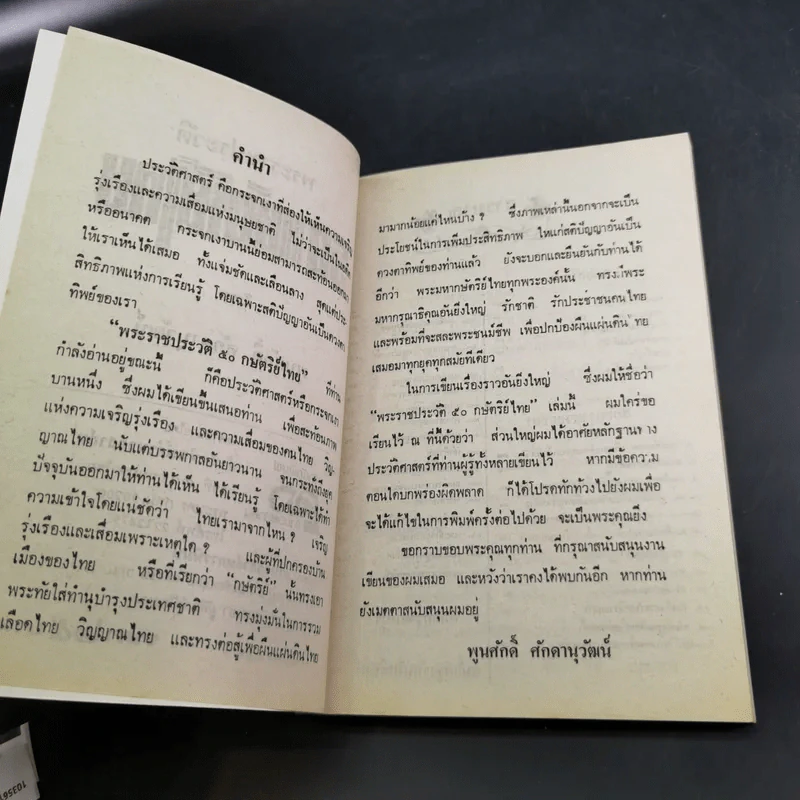 คำนำ
ประวัติศาสตร์ คือกระจกเงาที่ส่องให้เห็นความเจริญ
รุ่งเรืองและความเสื่อมแห่งมนุษยชาติ ไม่ว่าจะเป็นในอดีต
หรืออนาคต กระจกเงาบานนี้ย่อมสามารถสะท้อนออกมา
ให้เราเห็นได้เสมอ ทั้งแจ่มชัดและเลือนลาง สุดแต่ประ-
สิทธิภาพแห่งการเรียนรู้ โดยเฉพาะสติปัญญาอันเป็นดวงตา
ทิพย์ของเรา
“พระราชประวัติ ๕๐ กษัตริย์ไทย” ที่ท่าน
กำลังอ่านอยู่ขณะนี้ ก็คือประวัติศาสตร์หรือกระจกเงา
บานหนึ่ง ซึ่งผมได้เขียนขึ้นเสนอท่าน เพื่อสะท้อนภาพ
แห่งความเจริญรุ่งเรือง และความเสื่อมของคนไทย วิญ-
ญาณไทย นับแต่บรรพกาลอันยาวนาน จนกระทั่งถึงยุค
ปัจจุบันออกมาให้ท่านได้เห็น ได้เรียนรู้ โดยเฉพาะได้ทำ
ความเข้าใจโดยแน่ชัดว่า ไทยเรามาจากไหน ? เจริญ
รุ่งเรืองและเสื่อมเพราะเหตุใด ? และผู้ที่ปกครองบ้าน
เมืองของไทย หรือที่เรียกว่า “กษัตริย์” นั้นทรงเอา
พระทัยใส่ทำนุบำรุงประเทศชาติ ทรงมุ่งมั่นในการรวม
เลือดไทย วิญญาณไทย และทรงต่อสู้เพื่อผืนแผ่นดินไทย
มามากน้อยแค่ไหนบ้าง ? ซึ่งภาพเหล่านี้นอกจากจะเป็น
ประโยชน์ในการเพิ่มประสิทธิภาพ ให้แก่สติปัญญาอันเป็น
ดวงตาทิพย์ของท่านแล้ว ยังจะบอกและยืนยันกับท่านได้
อีกว่า พระมหากษัตริย์ไทยทุกพระองค์นั้น ทรงมีพระ
มหากรุณาธิคุณอันยิ่งใหญ่ รักชาติ รักประชาชนคนไทย
และพร้อมที่จะสละพระชนม์ชีพ เพื่อปกป้องผืนแผ่นดินไทย
เสมอมาทุกยุคทุกสมัยทีเดียว
ในการเขียนเรื่องราวอันยิ่งใหญ่ ซึ่งผมให้ชื่อว่า
“พระราชประวัติ ๕๐ กษัตริย์ไทย” เล่มนี้ ผมใคร่ขอ
เรียนไว้ ณ ที่นี้ด้วยว่า ส่วนใหญ่ผมได้อาศัยหลักฐานทาง
ประวัติศาสตร์ที่ท่านผู้รู้ทั้งหลายเขียนไว้ หากมีข้อความ
ตอนใดบกพร่องผิดพลาด ก็ได้โปรดทักท้วงไปยังผมเพื่อ
จะได้แก้ไขในการพิมพ์ครั้งต่อไปด้วย จะเป็นพระคุณยิ่ง
ขอกราบขอบพระคุณทุกท่าน ที่กรุณาสนับสนุนงาน
เขียนของผมเสมอ และหวังว่าเราคงได้พบกันอีก หากท่าน
ยังเมตตาสนับสนุนผมอยู่
พูนศักดิ์ ศักดานุวัฒน์